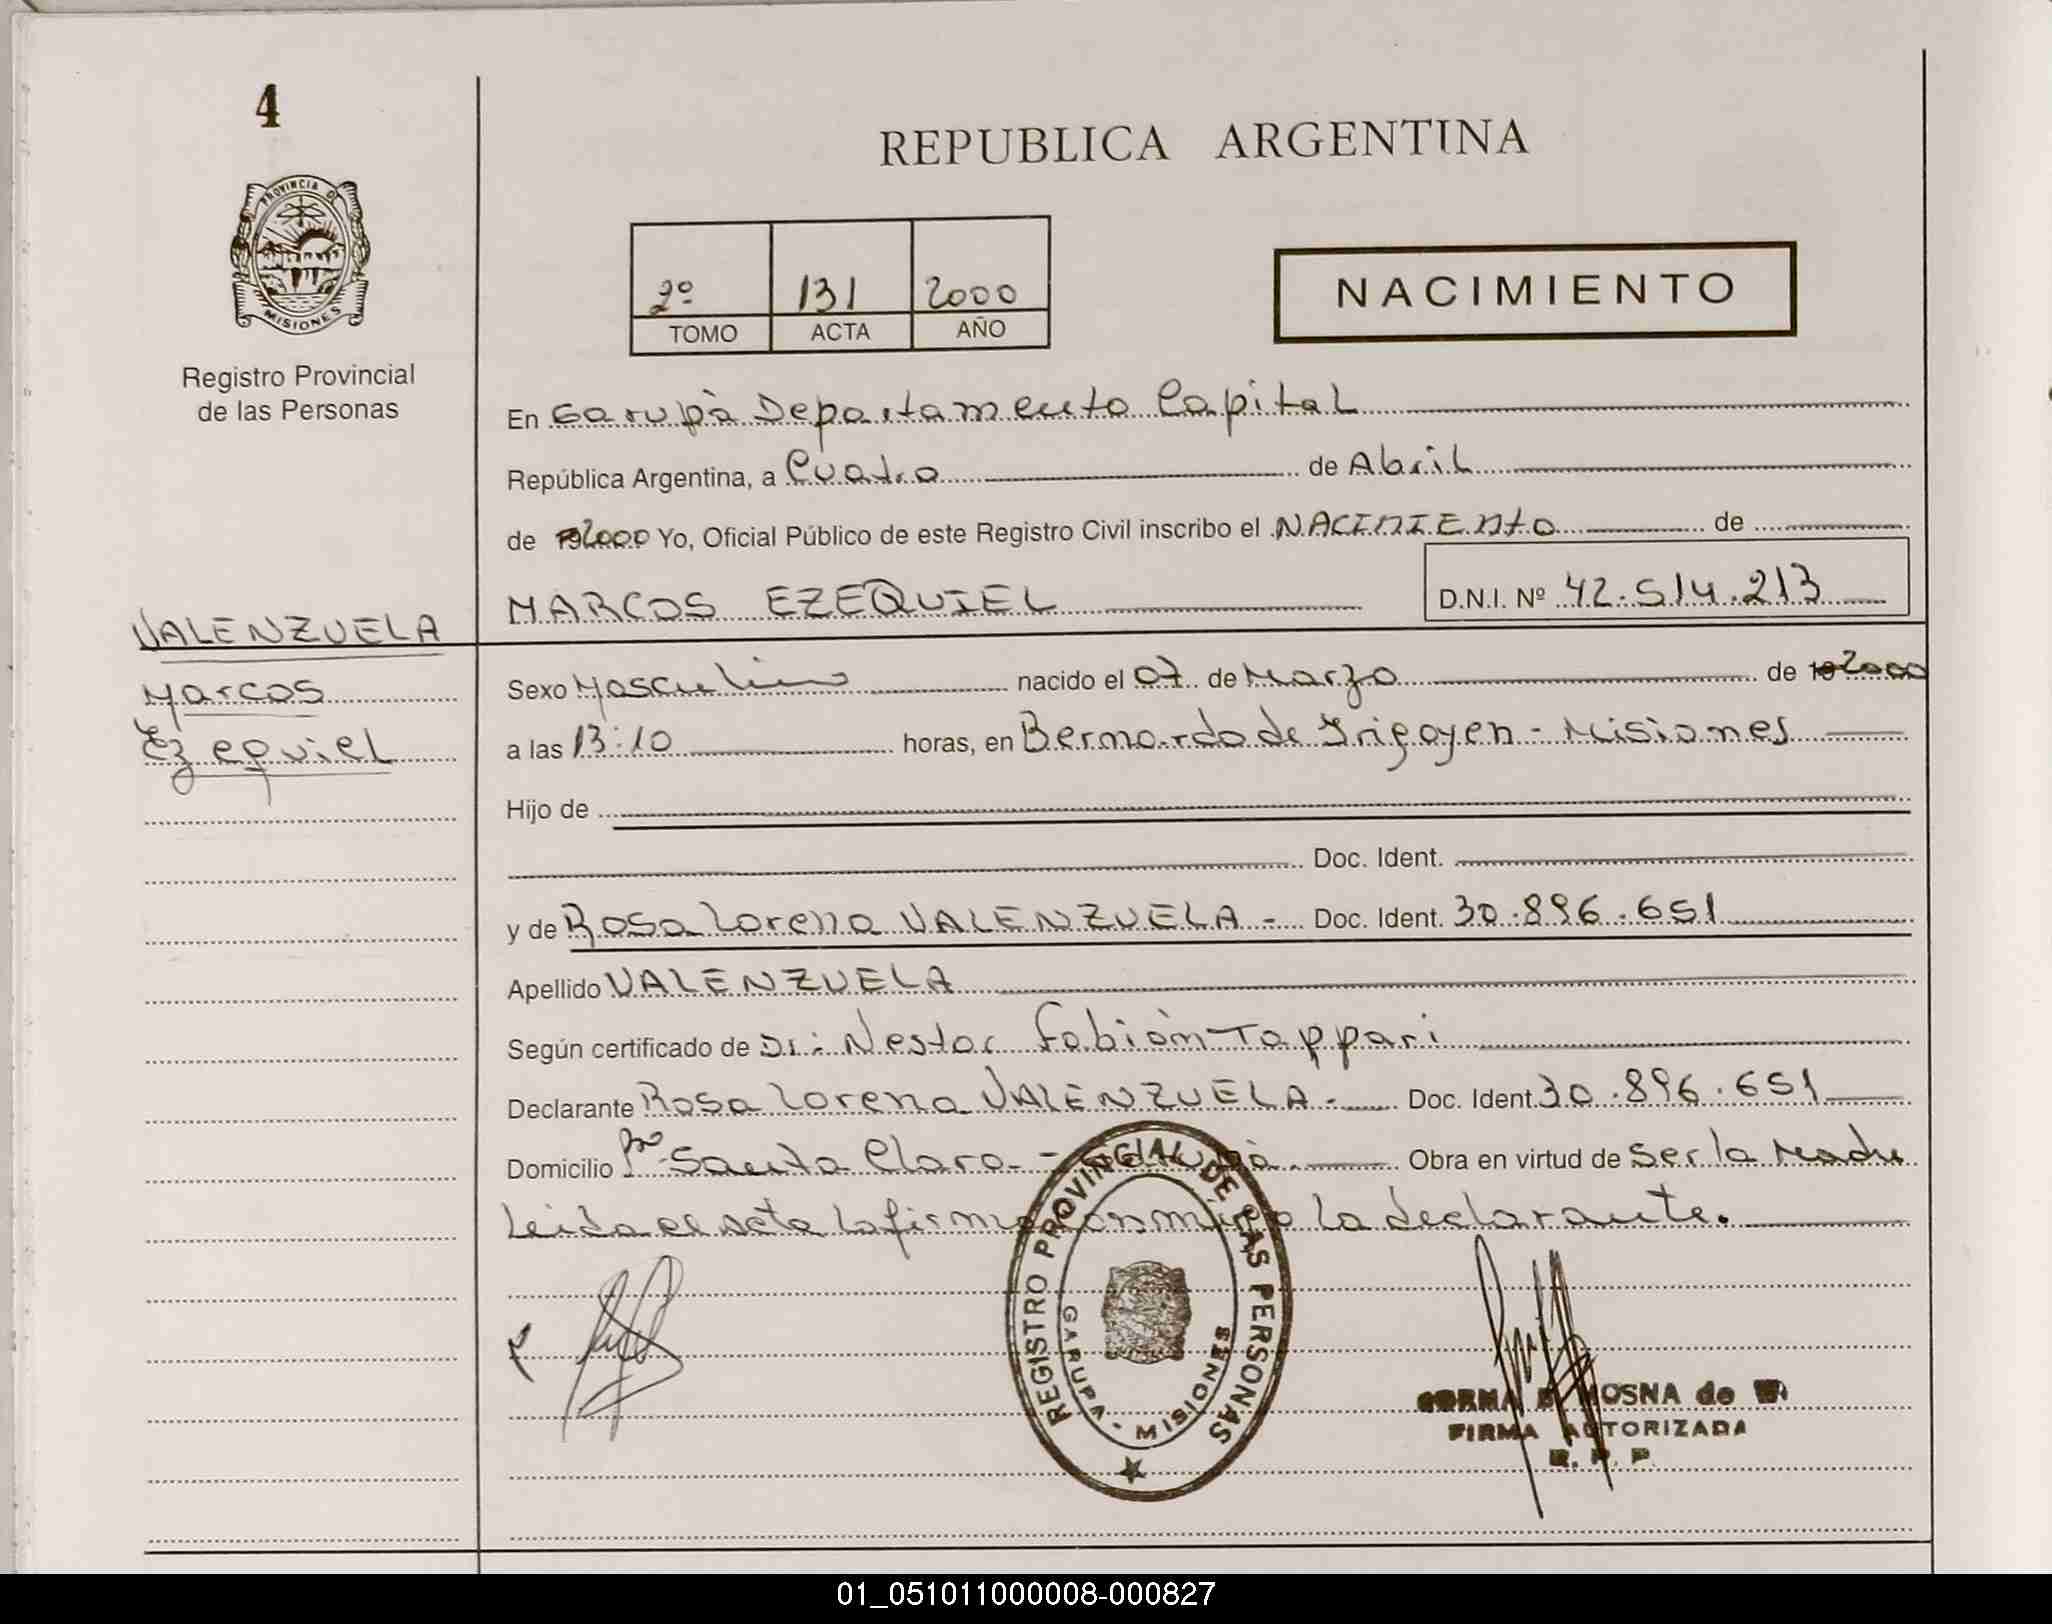 4
PROVINCIA DE
MISIONES
Registro Provincial
de las Personas
REPUBLICA ARGENTINA
2º 131 2000
TOMO ACTA AÑO
NACIMIENTO
En Garupà Departamento Capital
República Argentina, a Cuatro de Abril
de 2000 Yo, Oficial Público de este Registro Civil inscribo el NACIMIENTO de
MARCOS EZEQUIEL D.N.I. Nº 42.514.213
VALENZUELA
Marcos
Ezequiel
Sexo Masculino nacido el 07 de Marzo de 19 2000
a las 13:10 horas, en Bernardo de Irigoyen - Misiones
Hijo de
Doc. Ident.
y de Rosa Lorena VALENZUELA - Doc. Ident. 30.896.651
Apellido VALENZUELA
Según certificado de Dr: Nestor Fabiàn Tappari
Declarante Rosa Lorena VALENZUELA - Doc. Ident. 30.896.651
Domicilio Bº Santa Clara - Garupà Obra en virtud de Ser la Madre
Leida el acta la firma conmigo la declarante.
REGISTRO PROVINCIAL DE LAS PERSONAS
GARUPA - MISIONES
MOSNA de
FIRMA AUTORIZADA
R. P. P.
01_051011000008-000827